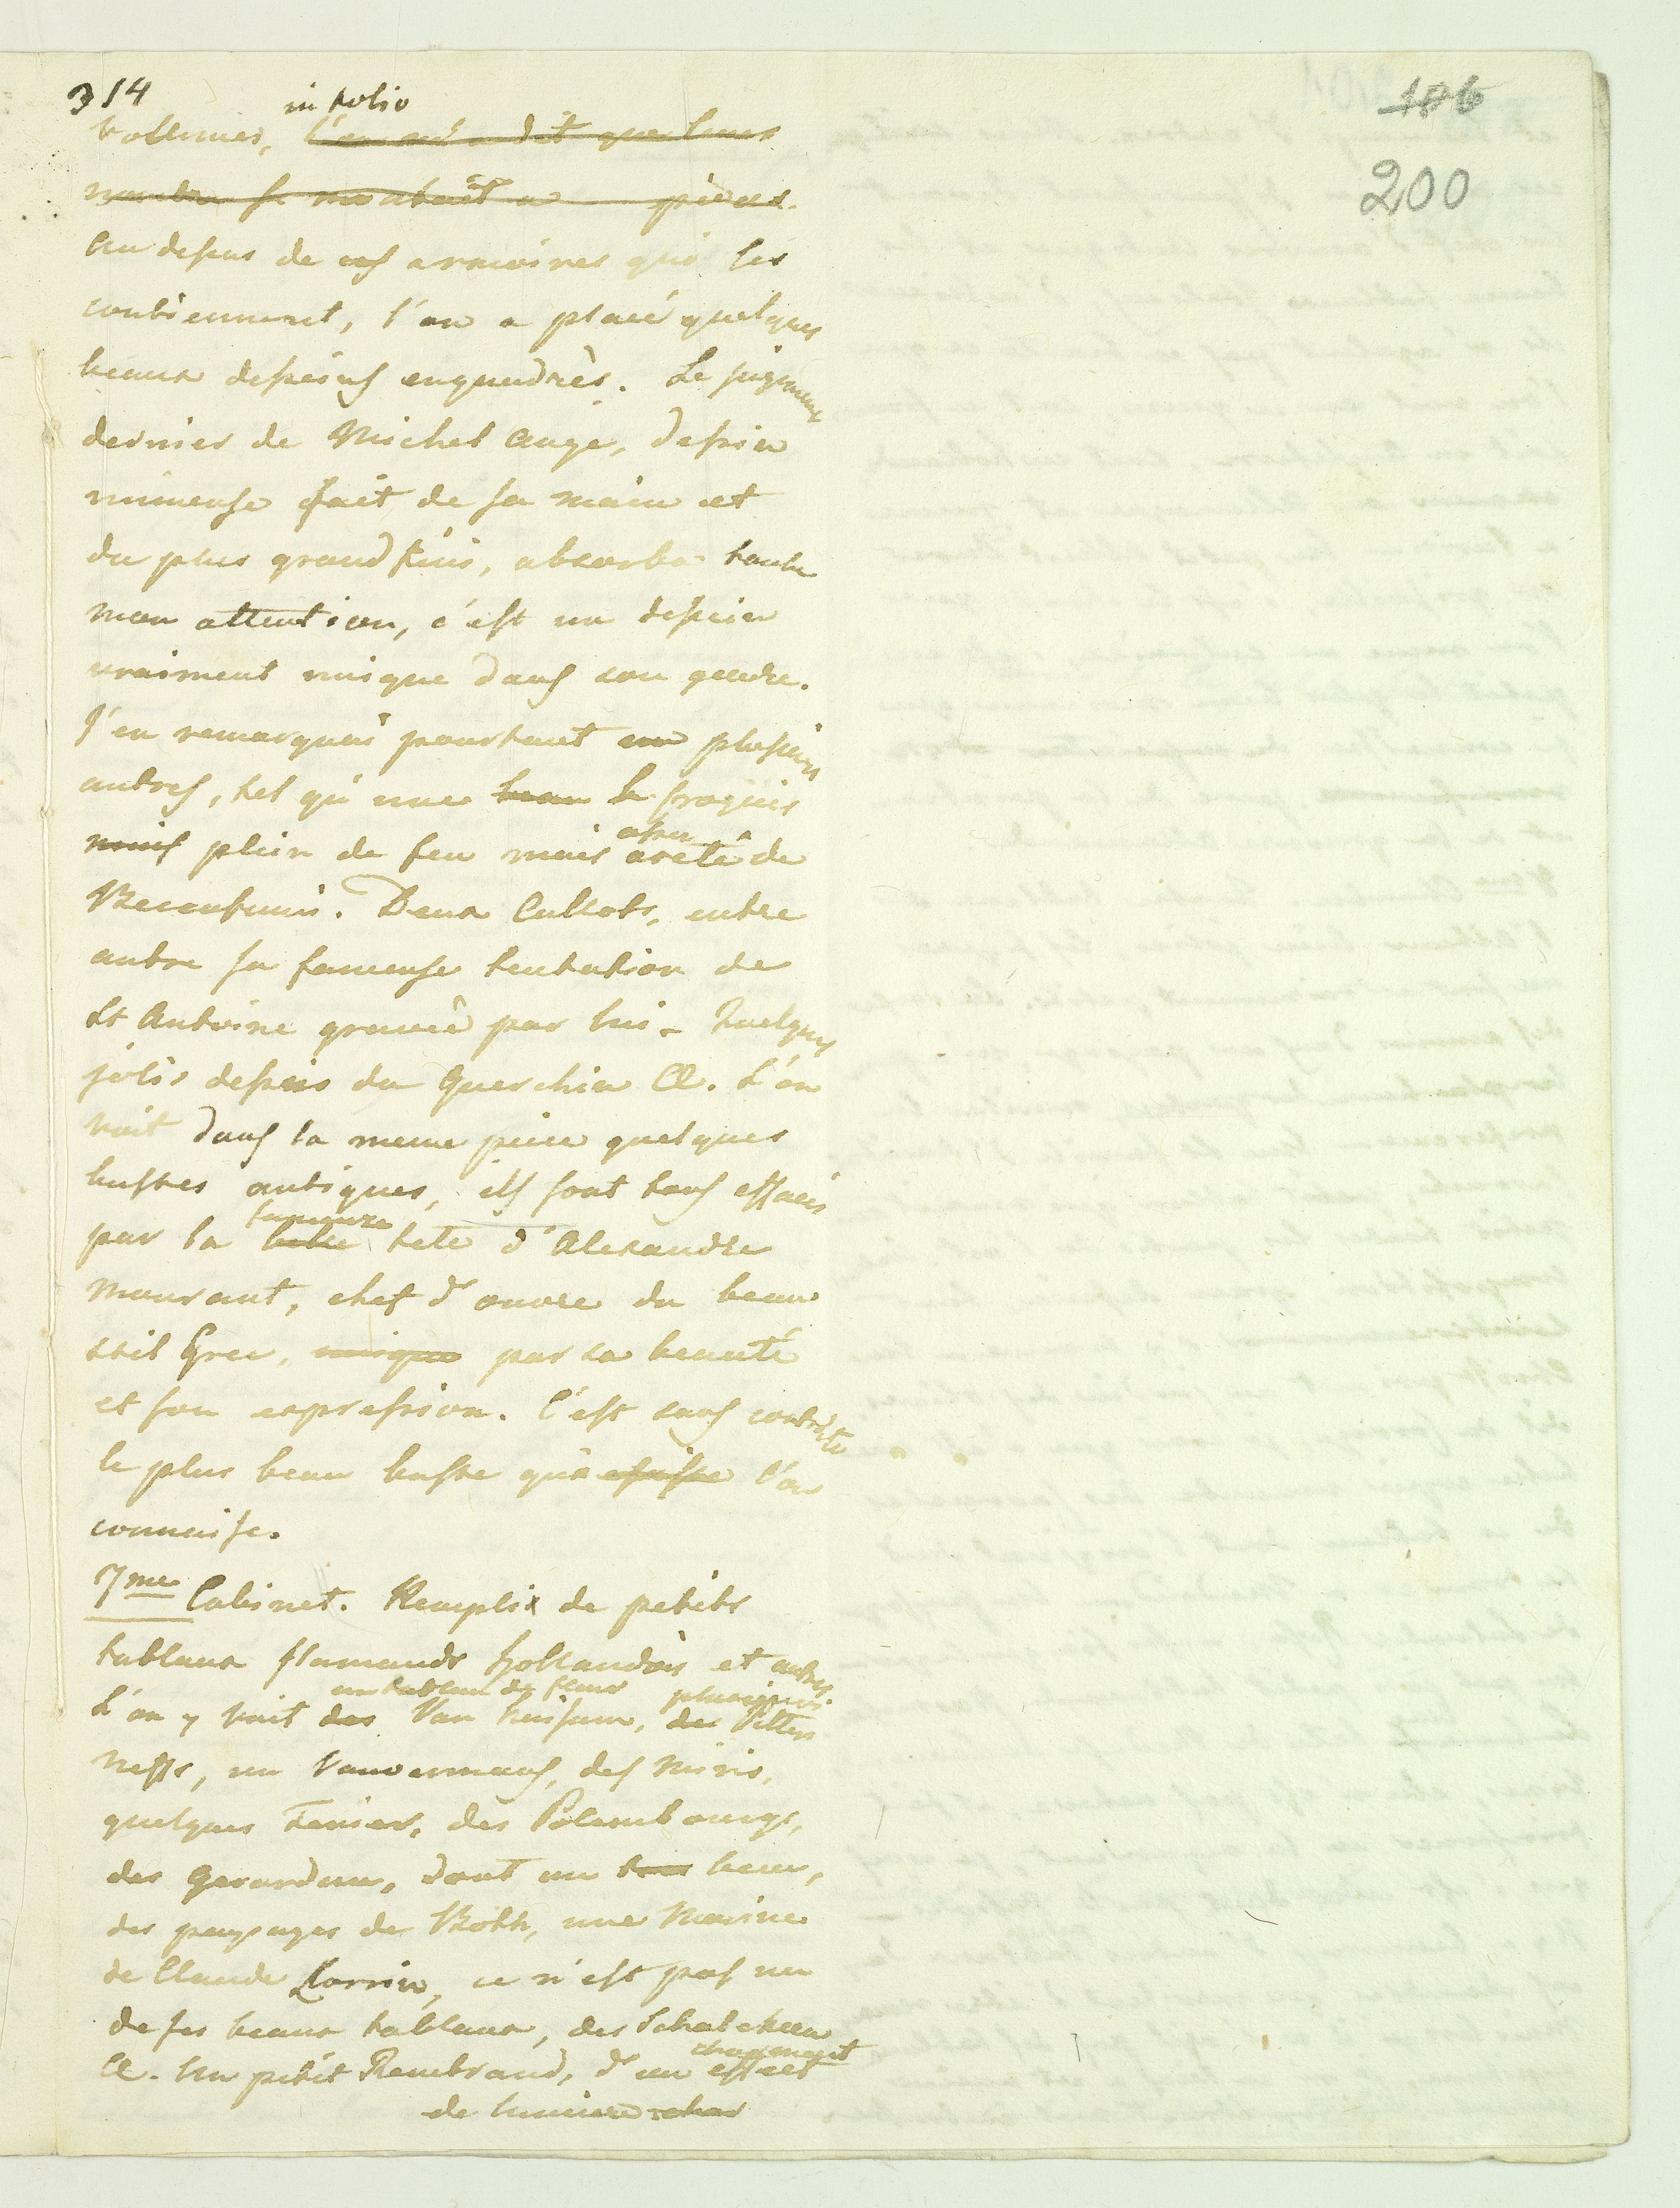 314
186
200
in folio
vollumes, l'on m'a dit que leurs
nombre se montoit a pièces.
au dessus de ces armoires qui les
contiennent, l'on a placé quelques
beaux desseins enquadrès. Le jugement
dernier de Michel ange, dessin
immense fait de sa main et
du plus grand fini, absorba toute
mon attention, c'est un dessein
vraiment unique dans son gendre.
J'en remarquai pourtant un plusieurs
autres, tel qu'une beau le croquis
mais plein de feu mais areté de
Beccafumi. Deux Callots, entre
autre sa fameuse tentation de
St Antoine gravée par lui. Quelques
jolis dessins du Guerchin &. L'on
voit dans la meme pièce quelques
bustes antiques, ils sont tous effacés
fameuse
par la belle tete d'Alexandre
mourant, chef d'ouvre du beau
stil Grec, unique par sa beauté
et son expression. C'est sans contredit
le plus beau buste qui existe l'on
connaisse.
7me Cabinet. Remplix de petits
tableaux flamands hollandois et autres
un tableau de fleur plusieurs
L'on y voit des Van Huisum, des Petters
Neffs, un Vauvermans, des Miris,
quelques Tenier, des Polembourgs,
des Gerardow, dont un beau,
des paysages de Both, une Marine
de Claude Lorrin, ce n'est pas un
de ses beaux tableaux, des Schalcken
charmant
&. Un petit Rembrand, d'un effect
de lumiere char